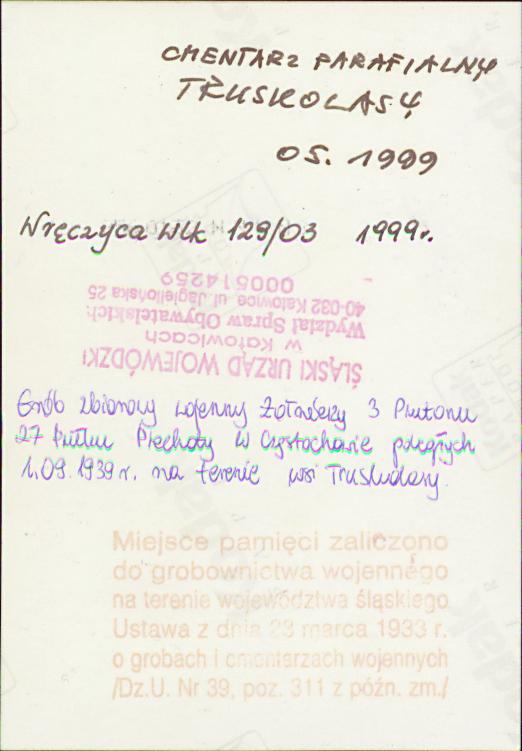 CMENTARZ PARAFIALNY
TRUSKOLASY
05. 1999
Wręczyca Wlk 129/03 1999r.
000514259
40-032 Katowice, ul. Jagiellońska 25
Wydział Spraw Obywatelskich
w Katowicach
ŚLĄSKI URZĄD WOJEWÓDZKI
Grób zbiorowy wojenny żołnierzy 3 Plutonu
27 Pułku Piechoty w Częstochowie poległych
1.09.1939 r. na terenie wsi Truskolasy.
Miejsce pamięci zaliczono
do grobownictwa wojennego
na terenie województwa śląskiego
Ustawa z dnia 23 marca 1933 r.
o grobach i cmentarzach wojennych
/Dz.U. Nr 39, poz. 311 z późn. zm./